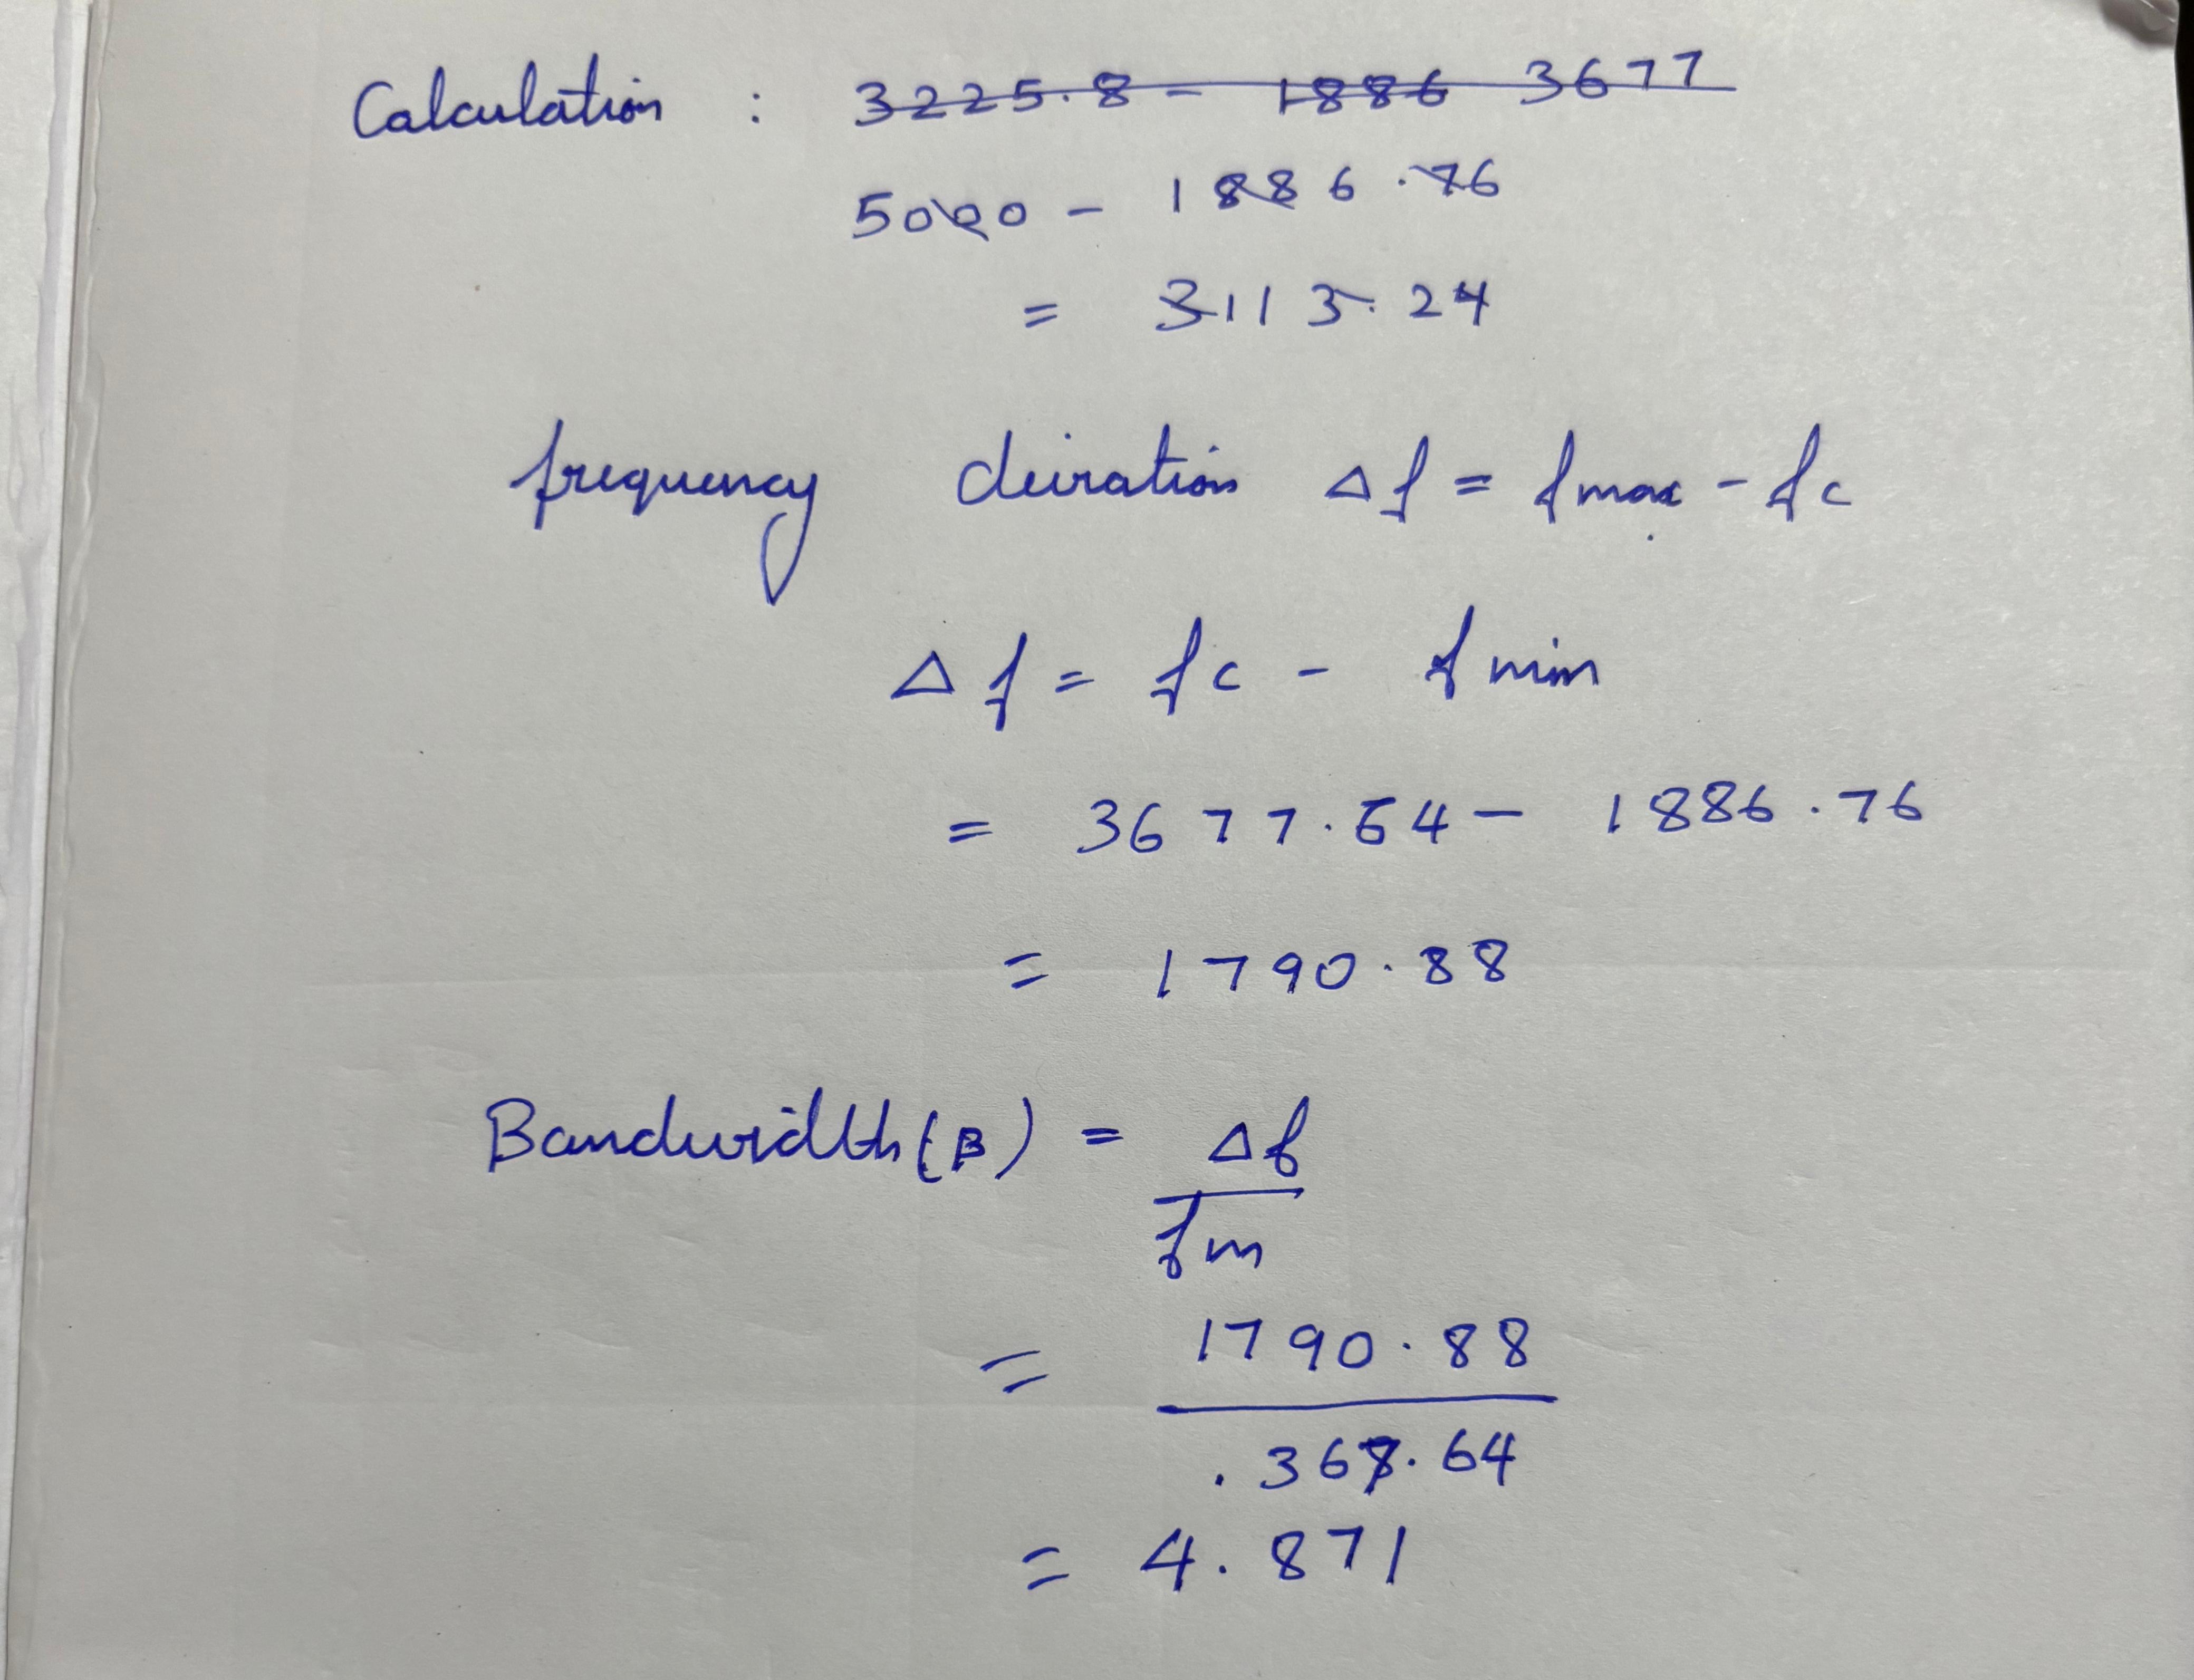 Calculation : 3225.8 - 1886 3677
5000 - 1886.76
= 3113.24
frequency deviration Δf = fmax - fc
Δf = fc - fmin
= 3677.64 - 1886.76
= 1790.88
Bandwidth (B) = Δf
fm
= 1790.88
.367.64
= 4.871